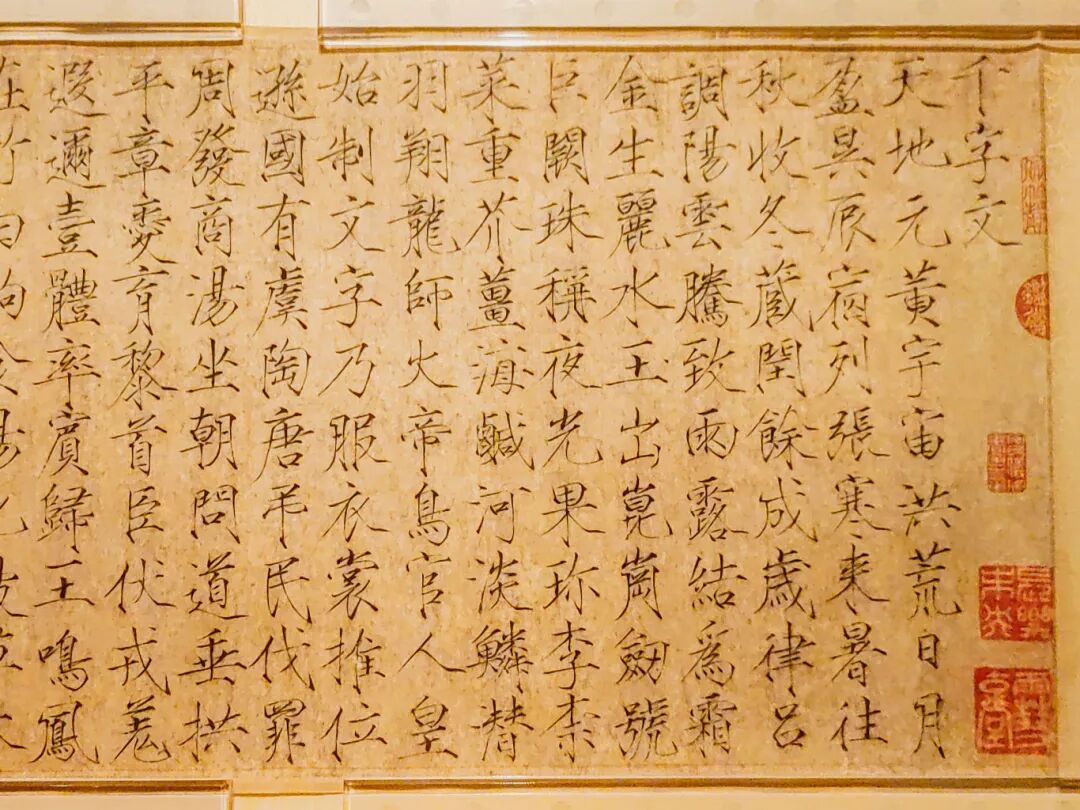 千字文
天地元黄宇宙洪荒日月
盈昃辰宿列張寒来暑往
秋收冬蔵閏餘成歳律吕
調陽雲騰致雨露結爲霜
金生麗水玉出崑崗劒號
巨闕珠稱夜光果珎李柰
菜重芥薑海鹹河淡鱗潜
羽翔龍師火帝鳥官人皇
始制文字乃服衣裳推位
遜國有虞陶唐弔民伐罪
周發商湯坐朝問道垂拱
平章愛育黎首臣伏戎羌
遐邇壹體率賓歸王鳴鳳